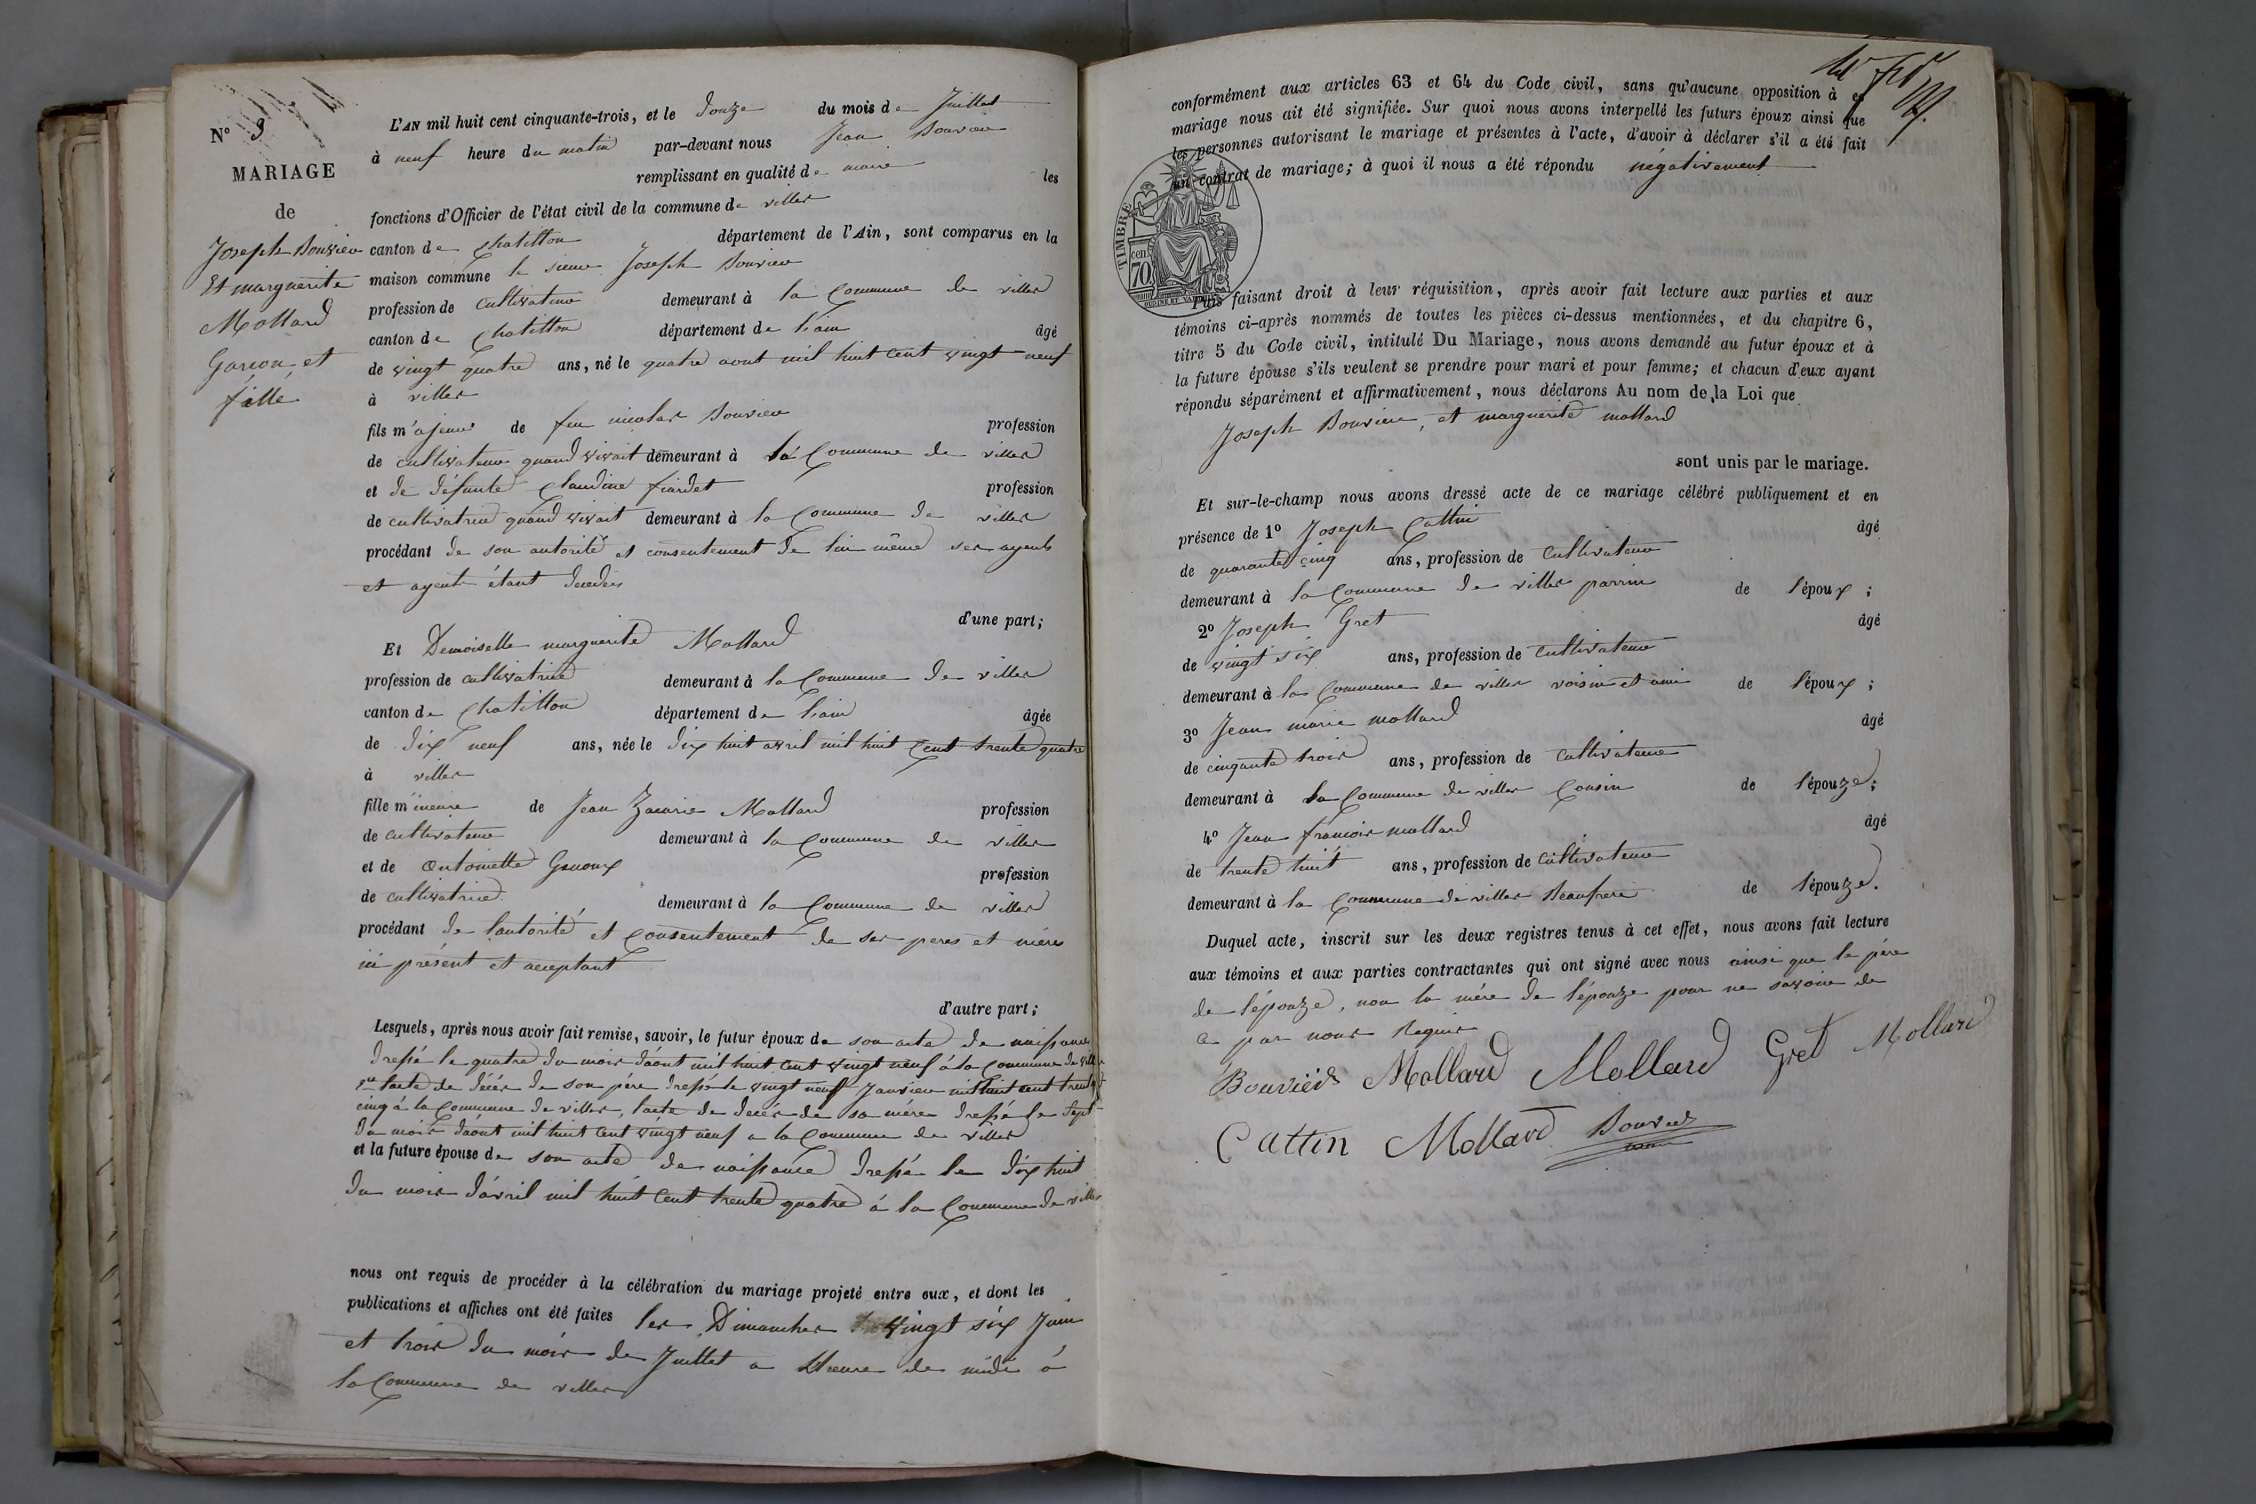 N° 9
MARIAGE
de
Joseph Bouvier
Et marguerite
Mollard
Garcon et
fille
L'AN mil huit cent cinquante-trois, et le douze du mois de Juillet
à neuf heure du matin par-devant nous Jean Bouvier
remplissant en qualité de maire les
fonctions d'Officier de l'état civil de la commune de villes
canton de chatillon département de l'Ain, sont comparus en la
maison commune le sieur Joseph Bouvier
profession de cultivateur demeurant à la Commune de villes
canton de Chatillon département de l'ain âgé
de vingt quatre ans, né le quatre aout mil huit cent vingt neuf
à villes
fils majeur de feu nicolas Bouvier profession
de cultivateur quand vivait demeurant à la Commune de villes
et de défunte Claudine profession
de cultivatrice quand vivait demeurant à la Commune de villes
procédant de son autorité et consentement de lui même ses ayeuls
et ayeules étant décédés
d'une part;
Et Demoiselle marguerite Mollard
profession de cultivatrice demeurant à la Commune de villes
canton de Chatillon département de l'ain âgée
de dix neuf ans, née le dix huit avril mil huit Cent trente quatre
à villes
fille mineure de Jean Mollard profession
de cultivateur demeurant à la Commune de villes
et de antoinette profession
de cultivatrice demeurant à la Commune de villes
procédant de l'autorité et Consentement de ses peres et méres
ici présent et acceptant
d'autre part;
Lesquels, après nous avoir fait remise, savoir, le futur époux de son acte de naissance
dressé le quatre du mois d'août mil huit cent vingt neuf à la Commune de villes
l'acte de décés de son père dressé le vingt neuf Janvier mil huit cent trente
cinq à la Commune de villes, l'acte de decés de sa mére dressé le Sept
du mois d'août mil huit Cent vingt neuf a la Commune de villes
et la future épouse de son acte de naissance dressé le dix huit
du mois d'avril mil huit Cent trente quatre à la Commune de villes
nous ont requis de procéder à la célébration du mariage projeté entre eux, et dont les
publications et affiches ont été faites les Dimanches vingt six Juin
et trois du mois de Juillet a L'heure de midi à
la Commune de villes
conformément aux articles 63 et 64 du Code civil, sans qu'aucune opposition à ce
mariage nous ait été signifiée. Sur quoi nous avons interpellé les futurs époux ainsi que
les personnes autorisant le mariage et présentes à l'acte, d'avoir à déclarer s'il a été fait
un contrat de mariage; à quoi il nous a été répondu négativement
TIMBRE
cen.
70
Puis faisant droit à leur réquisition, après avoir fait lecture aux parties et aux
témoins ci-après nommés de toutes les pièces ci-dessus mentionnées, et du chapitre 6,
titre 5 du Code civil, intitulé Du Mariage, nous avons demandé au futur époux et à
la future épouse s'ils veulent se prendre pour mari et pour femme; et chacun d'eux ayant
répondu séparément et affirmativement, nous déclarons Au nom de la Loi que
Joseph Bouvier, et marguerite mollard
sont unis par le mariage.
Et sur-le-champ nous avons dressé acte de ce mariage célébré publiquement et en
présence de 1° Joseph Cattin âgé
de quarante cinq ans, profession de Cultivateur
demeurant à la Commune de villes parrin de l'époux;
2° Joseph Gret âgé
de vingt six ans, profession de Cultivateur
demeurant à la Commune de villes voisin et ami de l'époux;
3° Jean marie mollard âgé
de cinquante trois ans, profession de Cultivateur
demeurant à La Commune de villes Cousin de l'épouze;
4° Jean francois mollard âgé
de trente huit ans, profession de Cultivateur
demeurant à la Commune de villes Beaufrere de l'épouze.
Duquel acte, inscrit sur les deux registres tenus à cet effet, nous avons fait lecture
aux témoins et aux parties contractantes qui ont signé avec nous ainsi que le père
de l'épouze, non la mére de l'épouze pour ne savoir de
ce par nous Requis
Bouvier Mollard Mollard Gret Mollard
Cattin Mollard Bouvier
maire